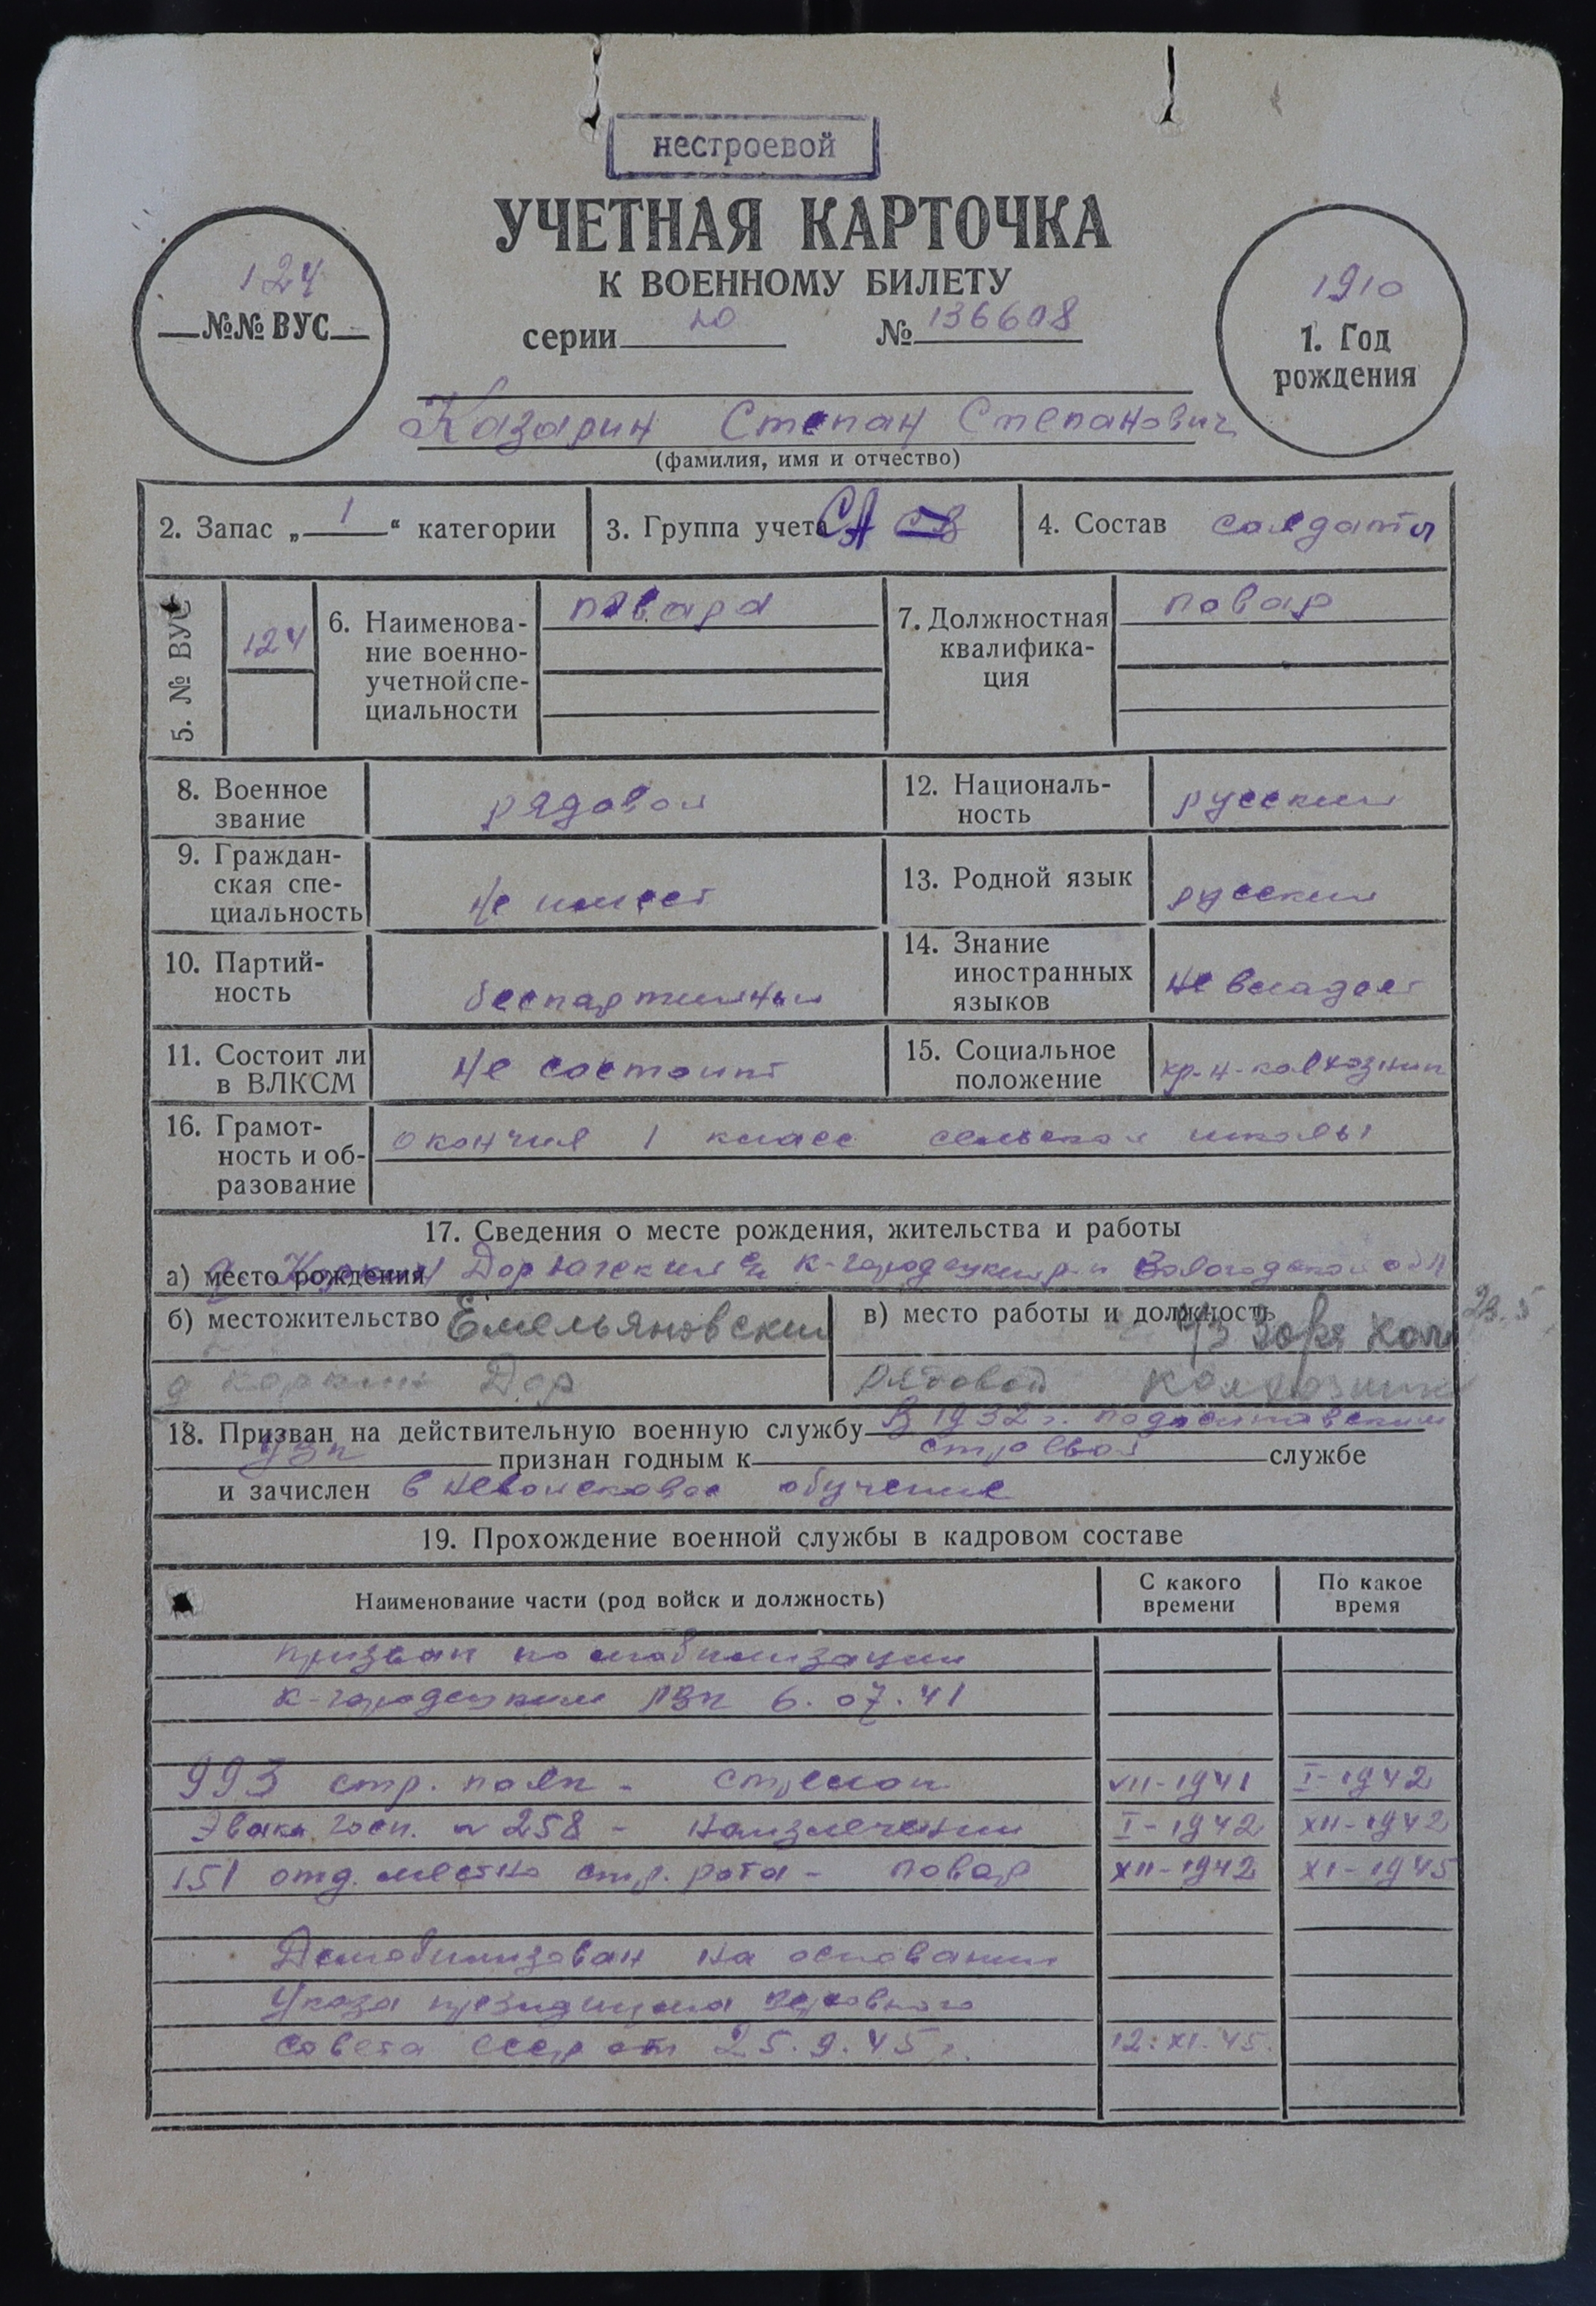 нестроевой
УЧЕТНАЯ КАРТОЧКА
К ВОЕННОМУ БИЛЕТУ
124
№№ ВУС
серии № 136698
1910
1. Год
рождения
Казарин Степан Степанович
(фамилия, имя и отчество)
2. Запас „ 1 “ категории
3. Группа учета СА
4. Состав солдаты
5. № ВУС
124
6. Наименова-
ние военно-
учетной спе-
циальности
повара
7. Должностная
квалифика-
ция
повар
8. Военное
звание
рядовой
12. Националь-
ность
русский
9. Граждан-
ская спе-
циальность
не имеет
13. Родной язык
русский
10. Партий-
ность
беспартийный
14. Знание
иностранных
языков
не владеет
11. Состоит ли
в ВЛКСМ
не состоит
15. Социальное
положение
кр-н-колхозник
16. Грамот-
ность и об-
разование
окончил 1 класс сельской школы
17. Сведения о месте рождения, жительства и работы
а) место рождения Дор К-городецкий р-н Вологодской обл
б) местожительство Емельяновский
д Коркин Дор
в) место работы и должность Заря кол
рядовой колхозник
29.5
18. Призван на действительную военную службу в 1932 г. Подосиновским
УВК признан годным к строевой службе
и зачислен в невойсковое обучение
19. Прохождение военной службы в кадровом составе
Наименование части (род войск и должность)
С какого
времени
По какое
время
призван по мобилизации
К-городецким РВК 6.07.41
993 стр. полк - стрелок VII-1941 I-1942
Эвако госп. № 258 - на излечении I-1942 XII-1942
151 отд. местн стр. рота - повар XII-1942 XI-1945
Демобилизован на основании
Указа президиума верховного
совета ссср от 25.9.45 г. 12.XI.45.